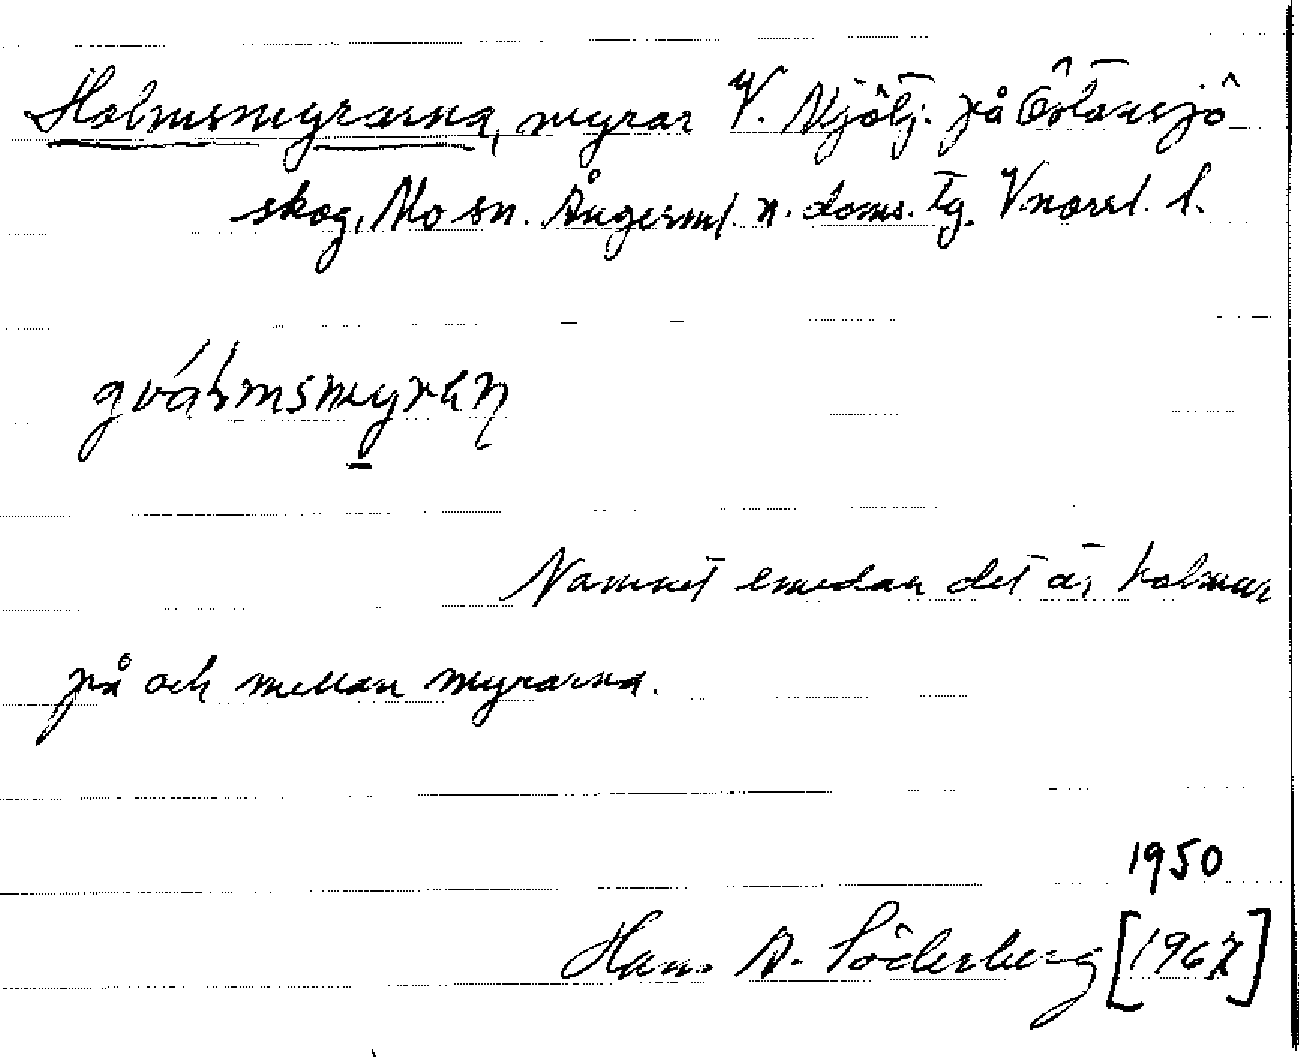 Holmsmyrarna, myrar V. Mjölj. på Östansjö
skog, Mo sn. Ångerml. n. doms. Tg. Vnorrl. l.
Namnet emedan det är holmar
på och mellan myrarna.
1950
Hans A. Söderberg [1967]